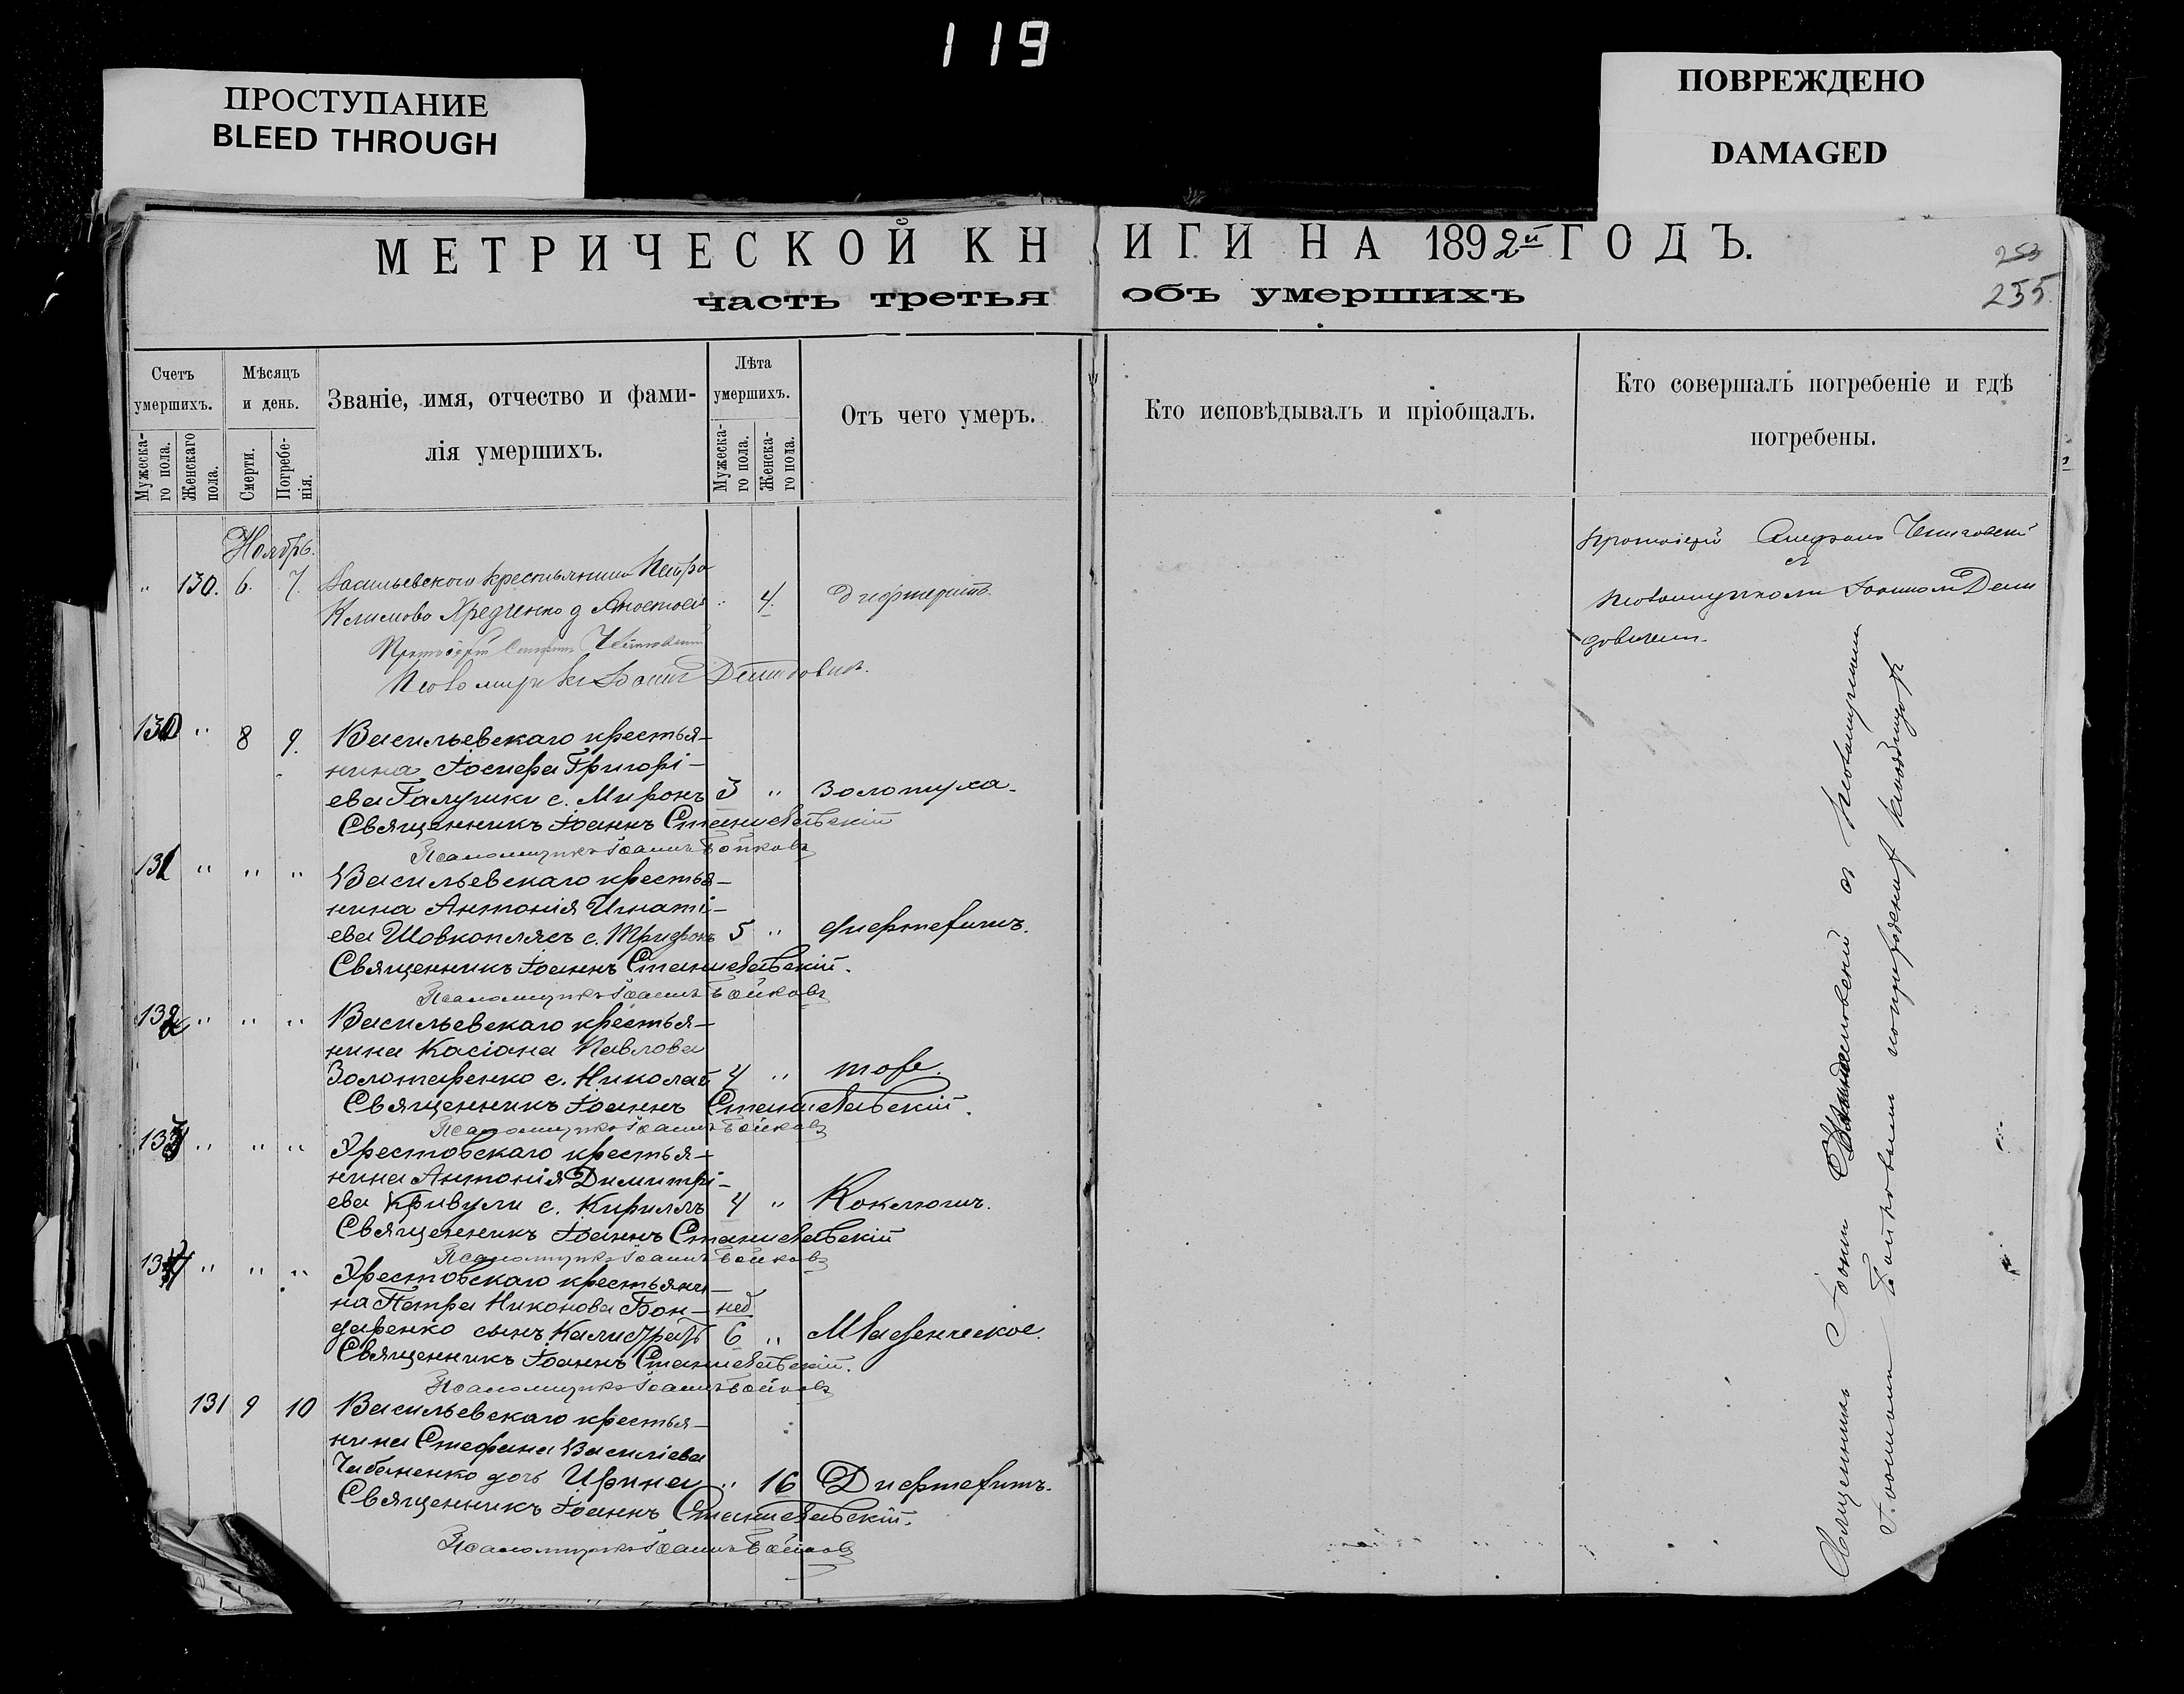 119
ПРОСТУПАНИЕ
BLEED THROUGH
ПОВРЕЖДЕНО
DAMAGED
МЕТРИЧЕСКОЙ КНИГИ НА 1892й ГОДЪ.
253
часть третья объ умершихъ
255.
Счетъ умершихъ.
Мужеска-го пола.
Женскаго пола.
Мѣсяцъ и день.
Смерти.
Погребе-нія.
Званіе, имя, отчество и фами-
лія умершихъ.
Лѣта умершихъ.
Мужеска-го пола.
Женска-го пола.
Отъ чего умеръ.
Кто исповѣдывалъ и пріобщалъ.
Кто совершалъ погребеніе и гдѣ
погребены.
Ноябрь.
" 130. 6. 7. Васильевскаго крестьянина Петра
Климова " 4. дифтеритъ.
Протоіерей
Псаломщикъ Іоаннъ Демидовичъ.
Протоіерей
съ
псаломщикомъ Іоанномъ Деми
довичемъ.
130 " 8 9. Васильевскаго крестья-
нина Іосифа Григорі-
ева Галушки с. Миронъ 3 " Золотуха.
Священникъ Іоаннъ Станиславскій
Псаломщикъ Іоаннъ Бойковъ
131 " " " Васильевскаго крестья-
нина Антонія Игнаті-
ева Шовкоплясъ с. Трифонъ 5 " дифтеритъ.
Священникъ Іоаннъ Станиславскій.
Псаломщикъ Іоаннъ Бойковъ
132 " " " Васильевскаго крестья-
нина Касіана Павлова
Золотаренко с. Николай 4 " тоже.
Священникъ Іоаннъ Станиславскій.
Псаломщикъ Іоаннъ Бойковъ
133 " " " Хрестовскаго крестья-
нина Антонія Димитрі-
ева Кривули с. Кириллъ 4 " Коклюшъ.
Священникъ Іоаннъ Станиславскій
Псаломщикъ Іоаннъ Бойковъ
134 " " " Хрестовскаго крестьяни-
на Петра Никонова Бон- нед
даренко сынъ Калистратъ 6 " Младенческое.
Священникъ Іоаннъ Станиславскій.
Псаломщикъ Іоаннъ Бойковъ
131 9 10 Васильевскаго крестья-
нина Стефана Василіева
Чабаненко дочь Ирина " 16 Дифтеритъ.
Священникъ Іоаннъ Станиславскій.
Псаломщикъ Іоаннъ Бойковъ
Священникъ Іоаннъ Станиславскій съ псаломщикомъ
Іоанномъ Бойковымъ